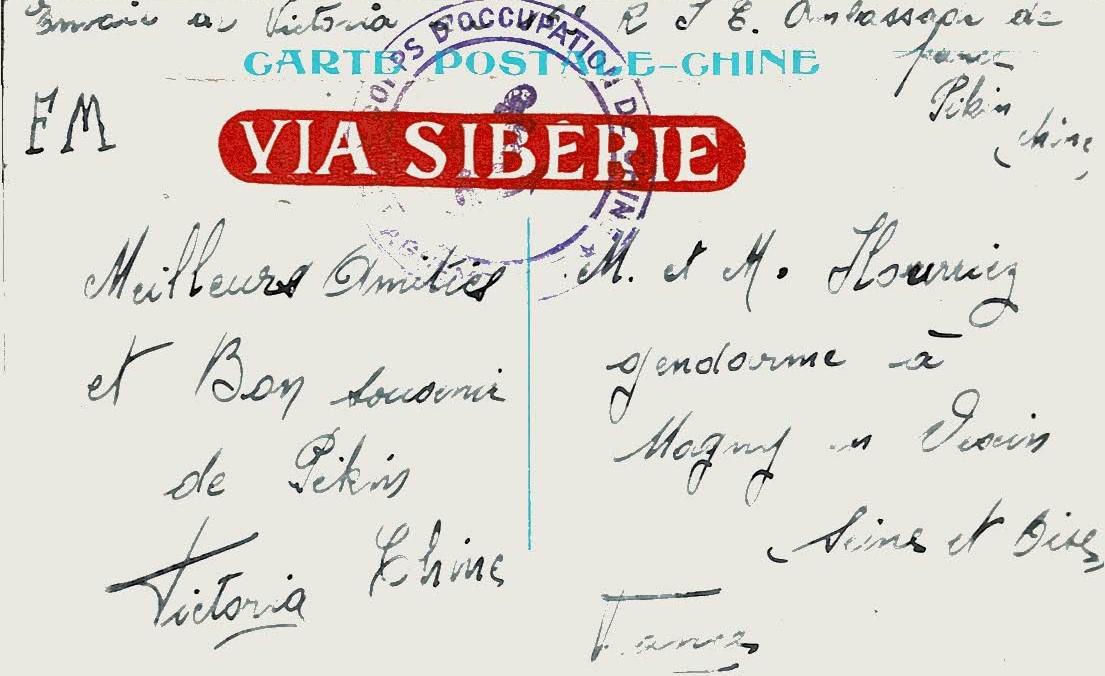 Envoie de Victoria R I E. Ambassade de
france
Pikin
Chine
CARTE POSTALE-CHINE
CORPS D'OCCUPATION DE CHINE ★
FM
VIA SIBÉRIE
Meilleurs Amitiés
et Bon souvenir
de Pikin
Chine
Victoria
M. et M. Hourriez
gendarme à
Magny en Vexin
Seine et Oise
France